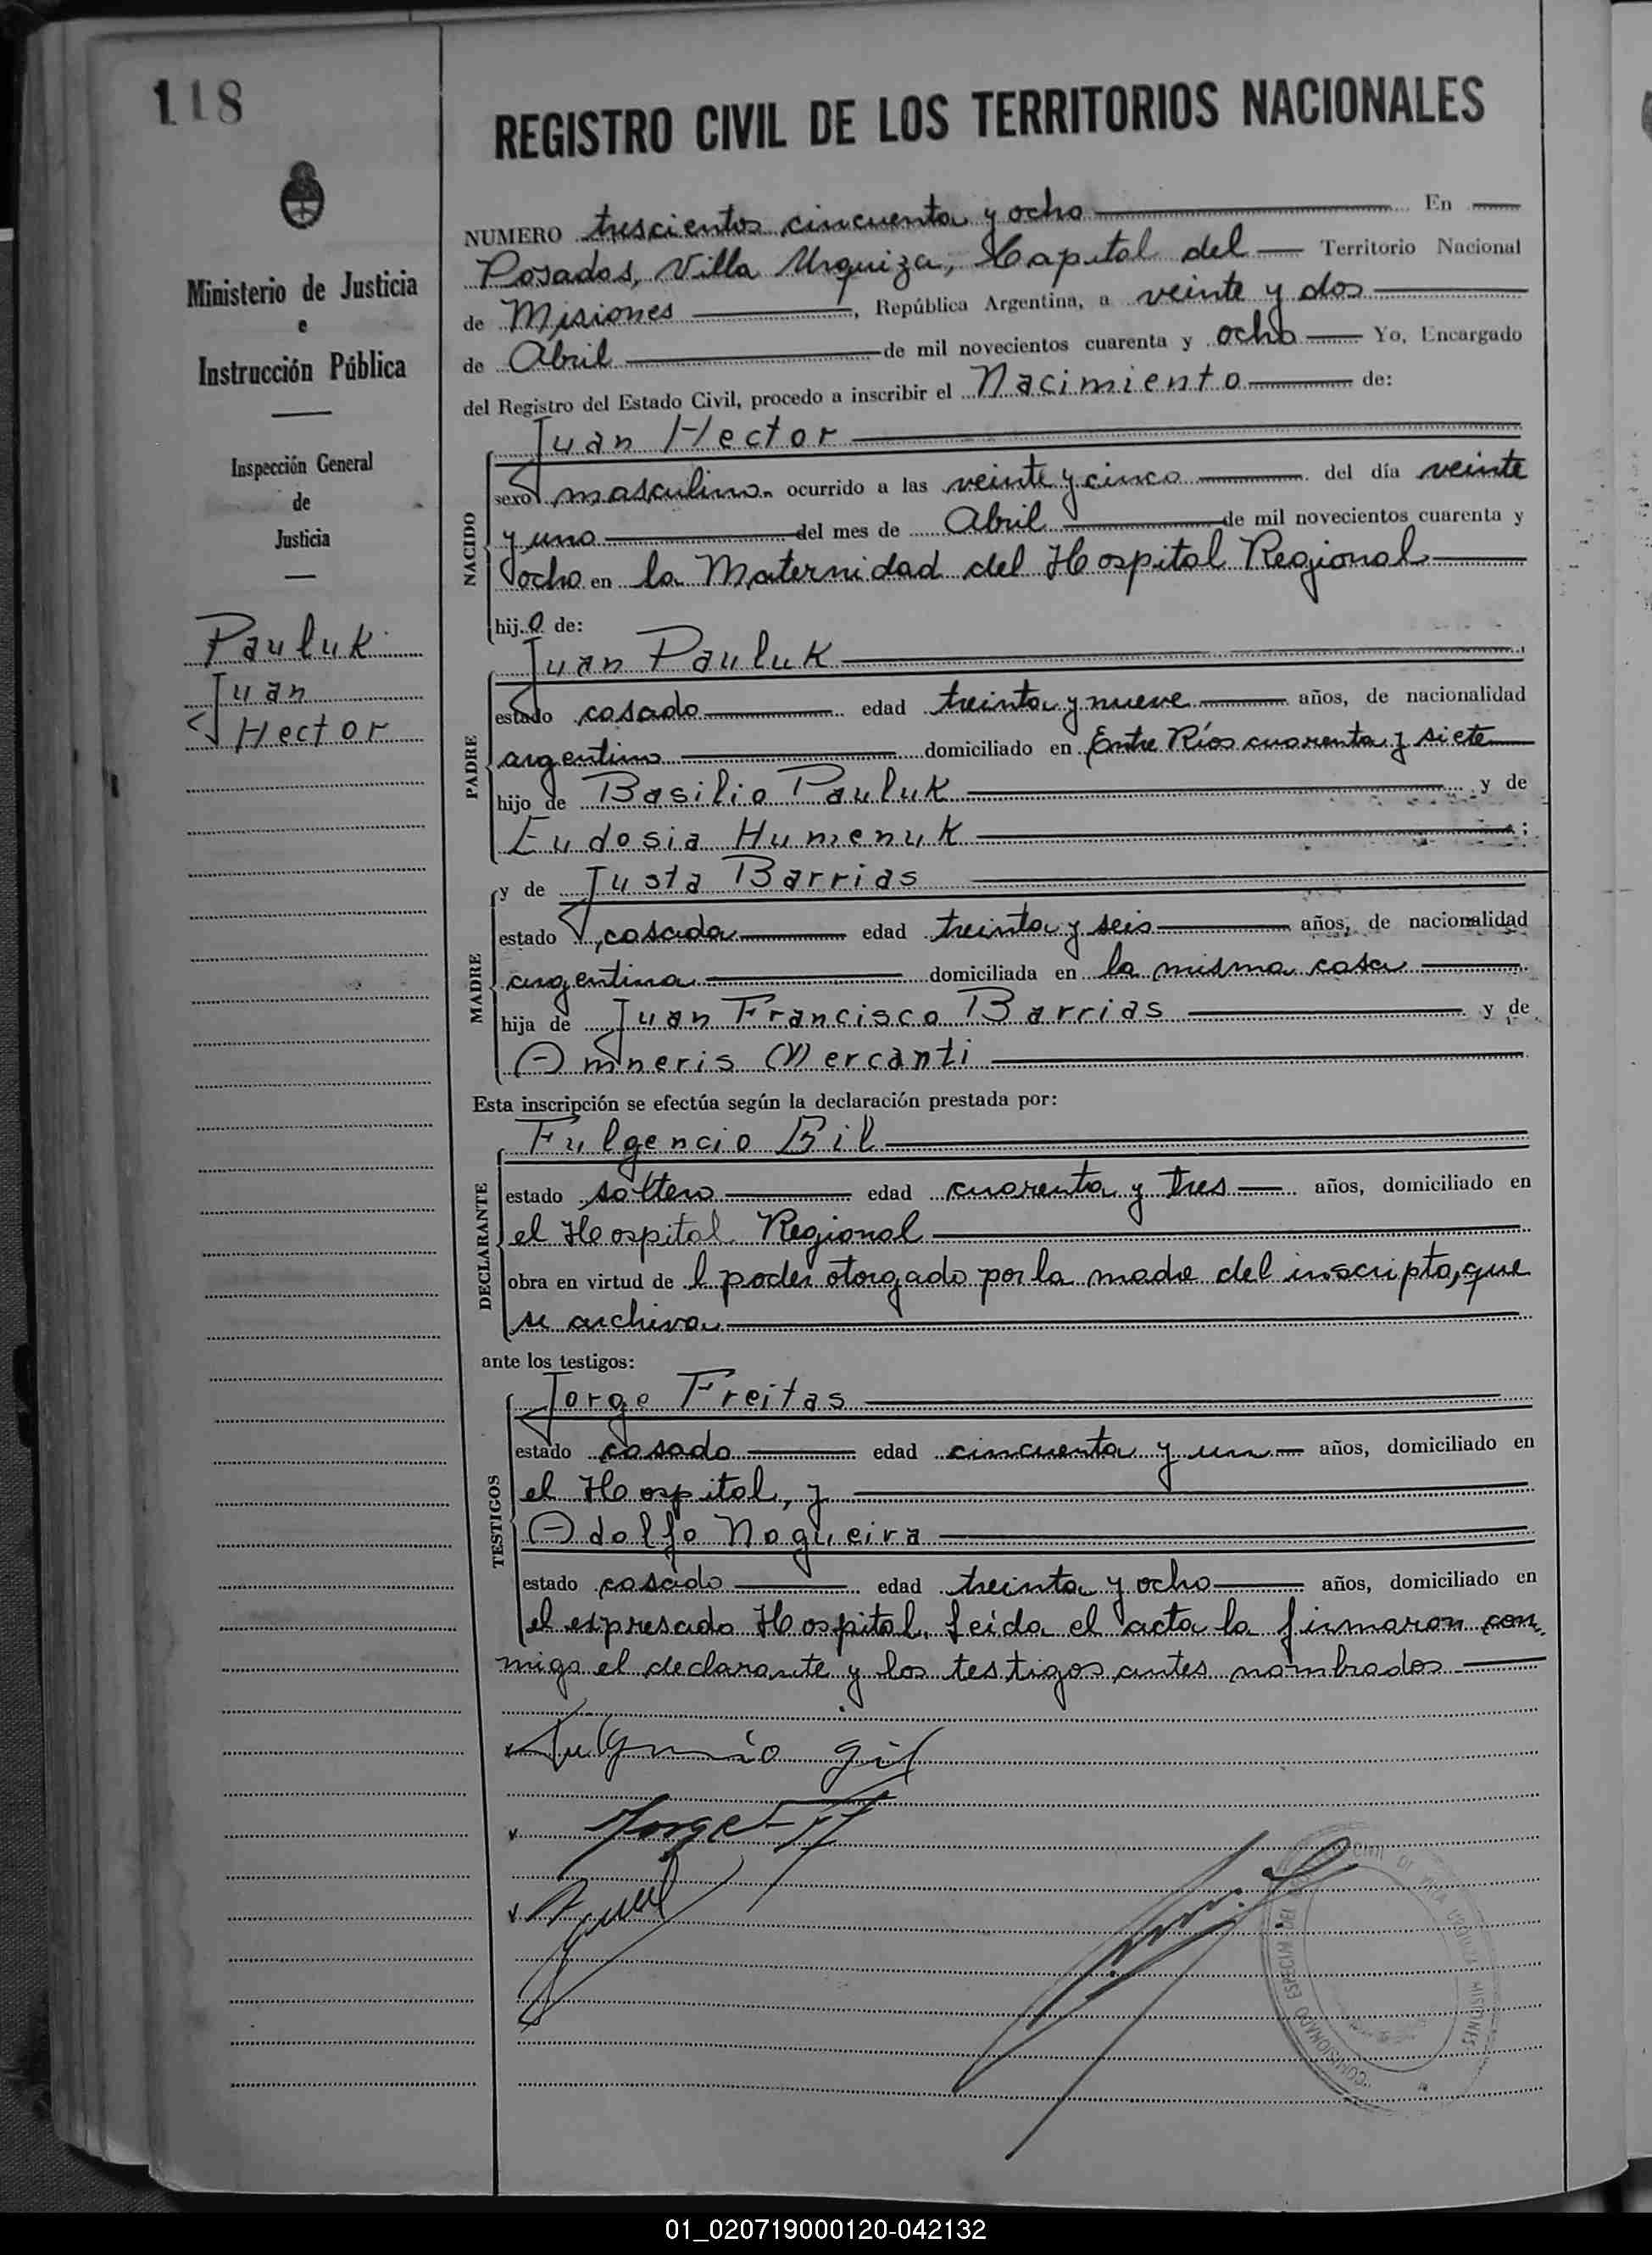 118
REGISTRO CIVIL DE LOS TERRITORIOS NACIONALES
Ministerio de Justicia
e
Instrucción Pública
Inspección General
de
Justicia
Pauluk
Juan
Hector
NUMERO trescientos cincuenta y ocho En
Posadas, Villa Urquiza, Capital del Territorio Nacional
de Misiones, República Argentina, a veinte y dos
de Abril de mil novecientos cuarenta y ocho Yo, Encargado
del Registro del Estado Civil, procedo a inscribir el Nacimiento de:
NACIDO
Juan Hector
sexo masculino. ocurrido a las veinte y cinco del día veinte
y uno del mes de Abril de mil novecientos cuarenta y
ocho en la Maternidad del Hospital Regional
hijo de:
PADRE
Juan Pauluk
estado casado edad treinta y nueve años, de nacionalidad
argentino domiciliado en Entre Ríos cuarenta y siete
hijo de Basilio Pauluk y de
Eudosia Humenuk;
MADRE
y de Justa Barrias
estado casada edad treinta y seis años, de nacionalidad
argentina domiciliada en la misma casa
hija de Juan Francisco Barrias y de
Amneris Mercanti
Esta inscripción se efectúa según la declaración prestada por:
DECLARANTE
Fulgencio Gil
estado soltero edad cuarenta y tres años, domiciliado en
el Hospital Regional
obra en virtud de l poder otorgado por la madre del inscripto, que
se archiva
ante los testigos:
TESTIGOS
Jorge Freitas
estado casado edad cincuenta y un años, domiciliado en
el Hospital, y
Adolfo Nogueira
estado casado edad treinta y ocho años, domiciliado en
el expresado Hospital. Leida el acta la firmaron con
migo el declarante y los testigos antes nombrados
Fulgencio Gil
Jorge
COMISIONADO ESPECIAL DEL CIVIL DE VILLA URQUIZA MISIONES
01_020719000120-042132